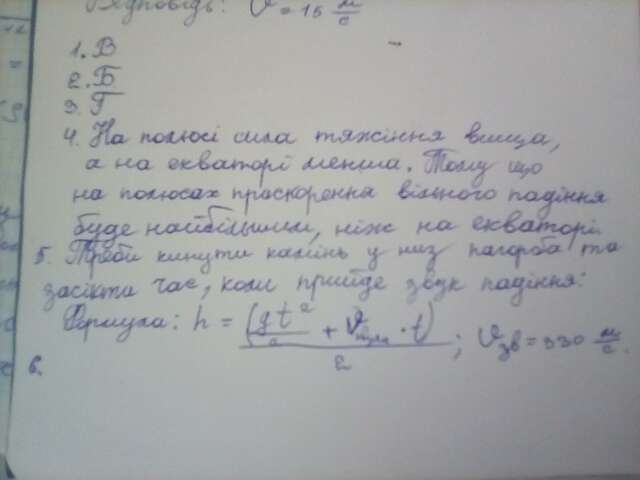 Відповідь: V = 15 м/с
1. В
2. Б
3. Г
4. На полюсі сила тяжіння вища,
а на екваторі менша. Тому що
на полюсах прискорення вільного падіння
буде найбільшим, ніж на екваторі.
5. Треба кинути камінь у низ пагорба та
засікти час, коли прийде звук падіння:
Формула: h = (gt²/2 + V · t)/2 ; Vзв = 330 м/с.
6.